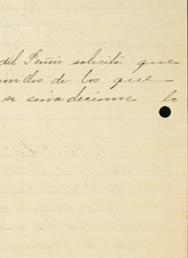 del Perú solicita que
de los que
se sirva decirme lo